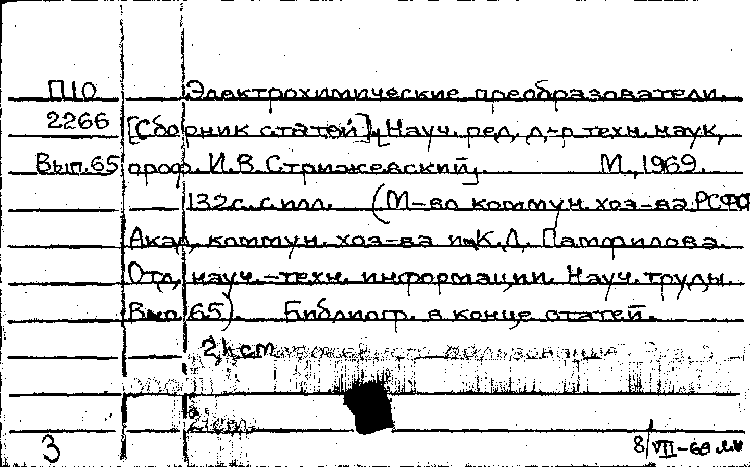 П10 Электрохимические преобразователи.
2266 [Сборник статей]. Науч. ред. д-р техн. наук,
Вып.65 проф. И.В. Стрижевский. М., 1969.
132с. с илл. (М-во коммун. хоз-ва РСФСР
Акад. коммун. хоз-ва им. К.Д. Памфилова.
Отд. науч.-техн. информации. Науч. труды.
Вып. 65). Библиогр. в конце статей.
3 8/VII-69